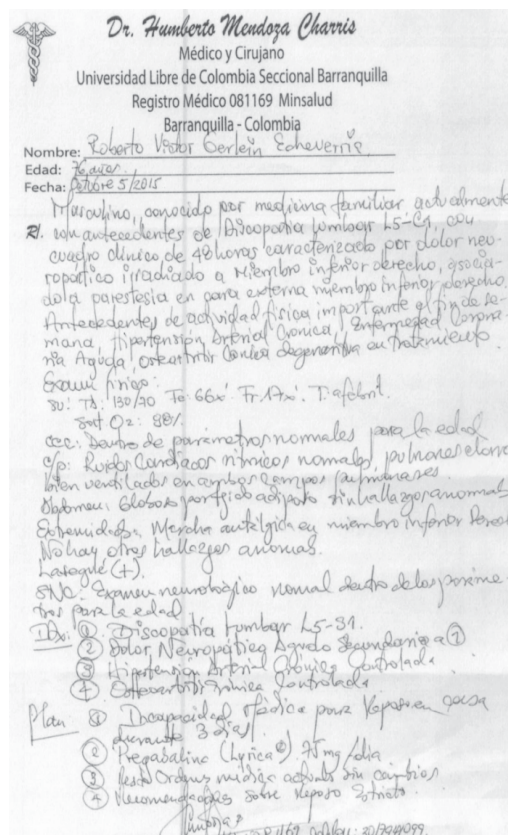 Dr. Humberto Mendoza Charris
Médico y Cirujano
Universidad Libre de Colombia Seccional Barranquilla
Registro Médico 081169 Minsalud
Barranquilla - Colombia
Nombre: Roberto Victor Gerlein Echeverría
Edad: 76 años
Fecha: Octubre 5/2015
Masculino, conocido por medicina familiar actualmente
R/. con antecedentes de Discopatía Lumbar L5-S1 con
cuadro clínico de 48 horas caracterizado por dolor neu-
ropático irradiado a miembro inferior derecho, asocia-
do a parestesia en cara externa miembro inferior derecho.
Antecedentes de actividad física importante el fin de se-
mana, Hipertensión Arterial Crónica, Enfermedad Corona-
ria Aguda, osteoartritis degenerativa en tratamiento
Examen físico:
SV: TA: 130/70 Fc: 66x' Fr: 17x' T: afebril.
Sat. O2: 98%
CCC: Dentro de parámetros normales para la edad
C/P: Ruidos Cardíacos rítmicos normales, pulmones claros
bien ventilados en ambos campos pulmonares.
Abdomen: Globoso por tejido adiposo sin hallazgos anormales
Extremidades: Marcha antálgica en miembro inferior derecho
No hay otros hallazgos anormales.
Lasegue (+).
SNC: Examen neurológico normal dentro de los paráme-
tros para la edad
IDx: ① Discopatía Lumbar L5-S1.
② Dolor Neuropático Agudo Secundario a ①
③ Hipertensión Arterial Crónica Controlada
④ Osteoartritis Crónica Controlada
Plan: ① Incapacidad Médica para Reposo en casa
durante 3 días
② Pregabalina (Lyrica®) 75 mg/dia
③ Resto Ordenes médicas actuales sin cambios
④ Recomendaciones sobre Reposo Estricto